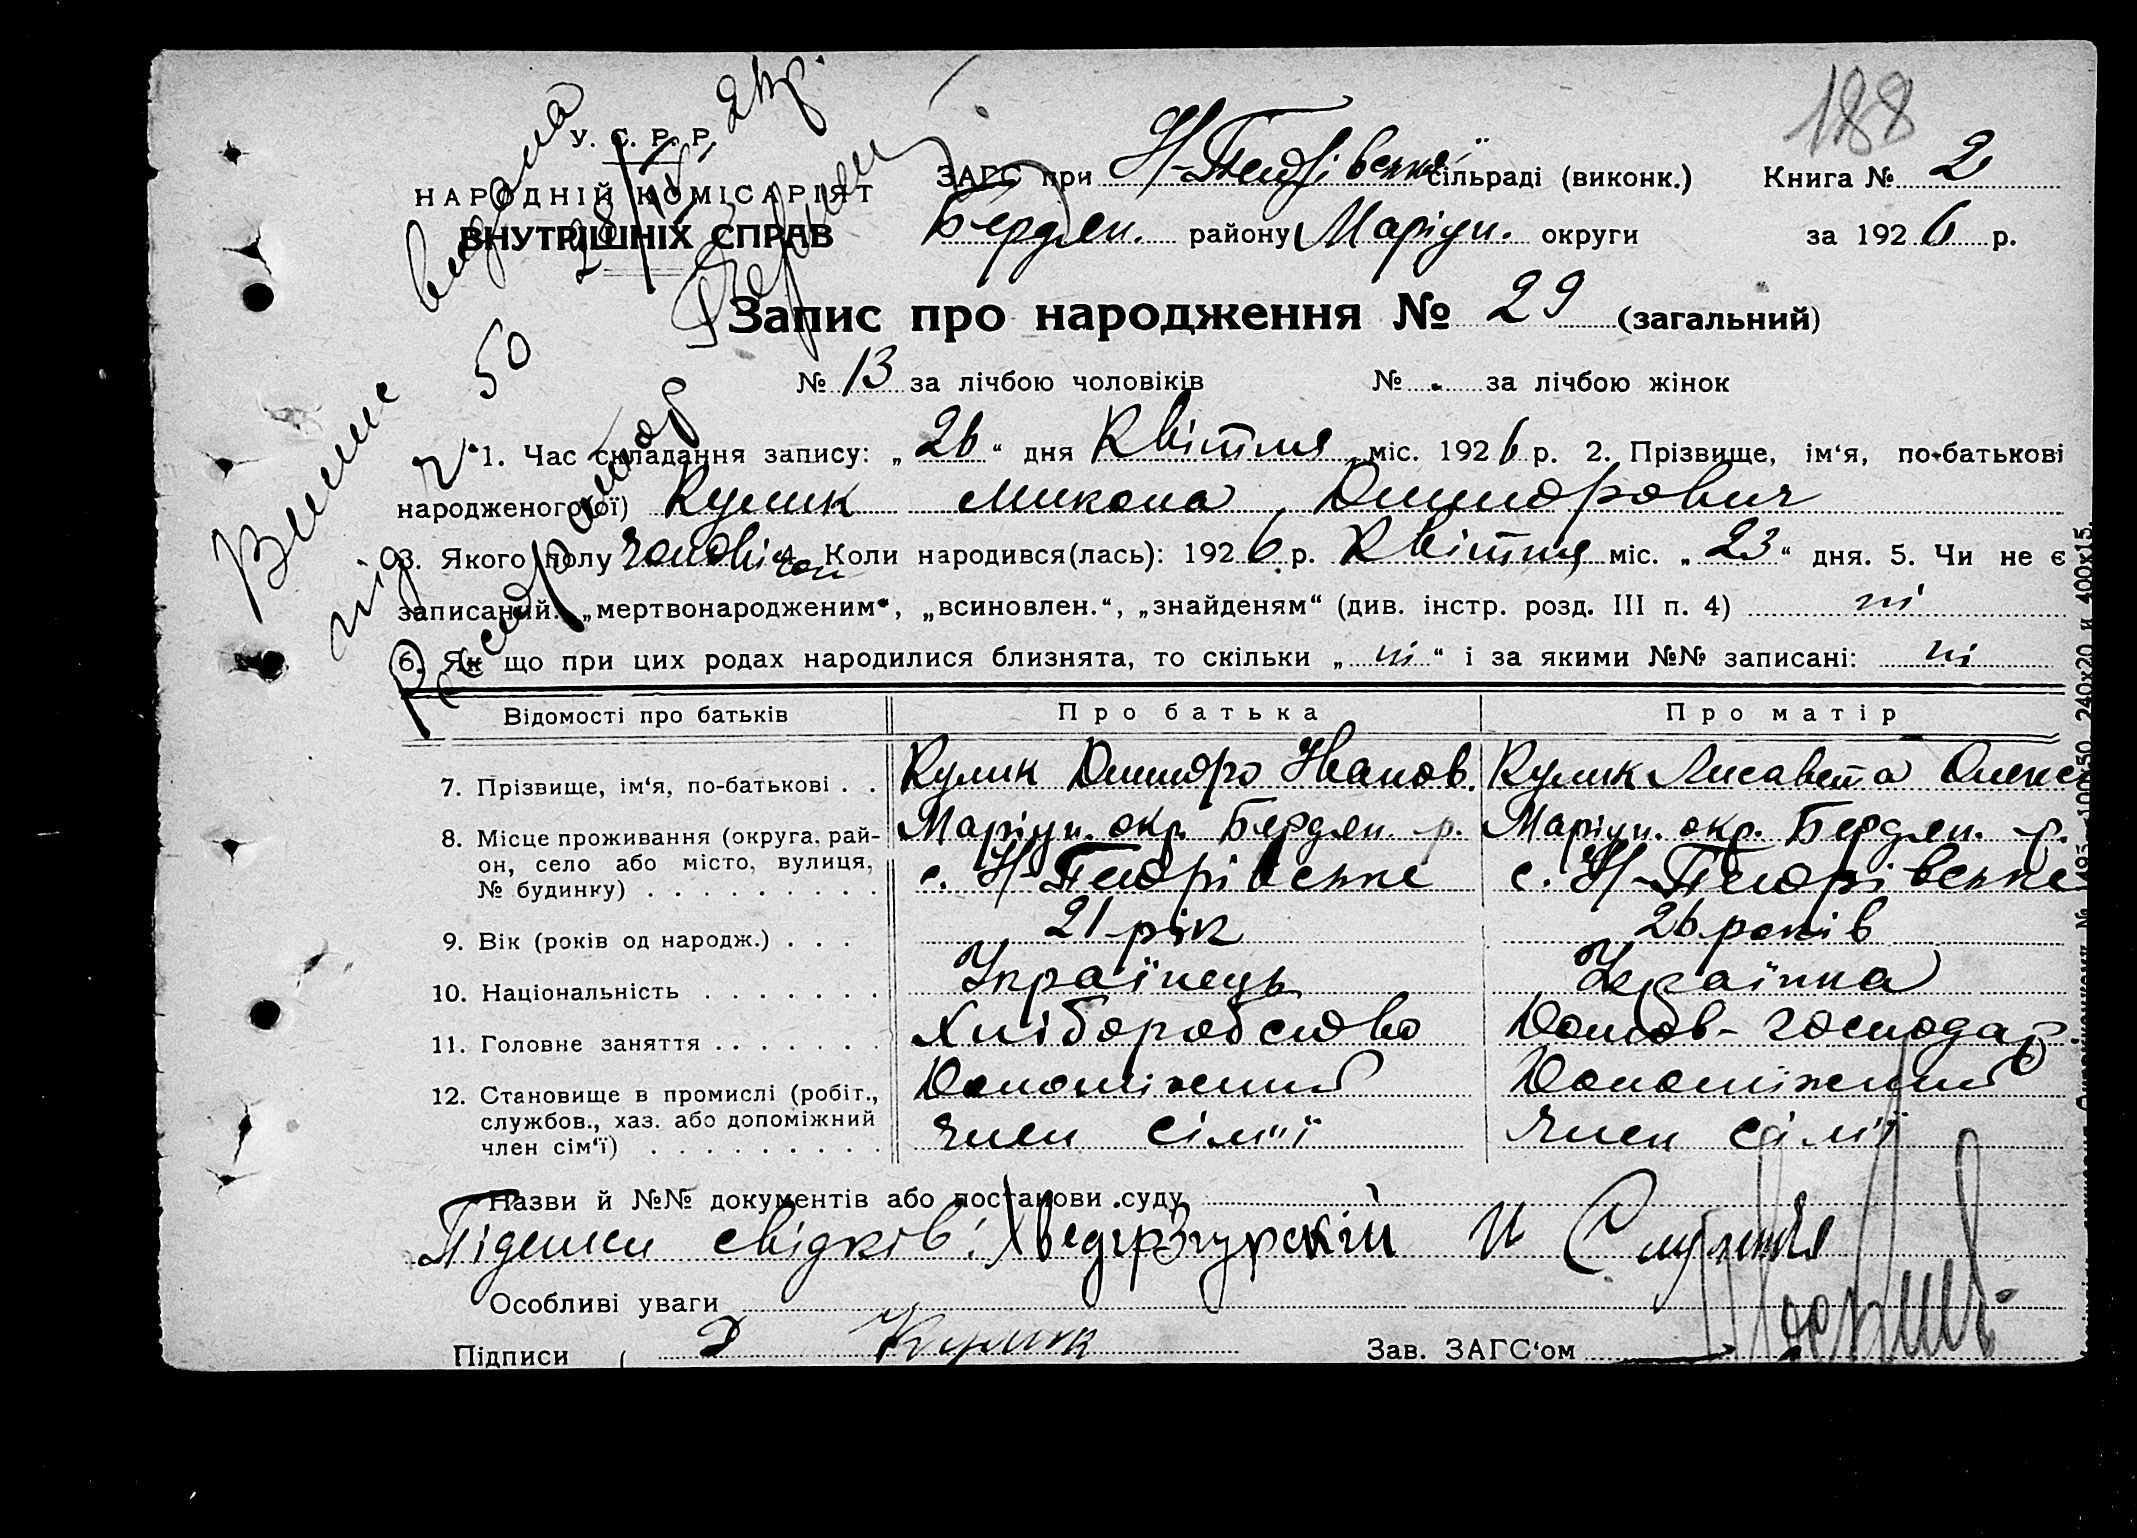 188
У. С. Р. Р.
НАРОДНІЙ КОМІСАРІЯТ
ВНУТРІШНІХ СПРАВ
ЗАГС при Н-Петрівській сільраді (виконк.) Книга № 2
Бердян. району Маріуп. округи за 1926 р.
Запис про народження № 29 (загальний)
№ 13 за лічбою чоловіків № за лічбою жінок
Випис видана
під 50
1. Час складання запису: „26“ дня Квітня міс. 1926 р. 2. Прізвище, ім‘я, по-батькові
народженого(ої) Кулик Микола Дмитрович
3. Якого полу чоловічої 4. Коли народився(лась): 1926 р. Квітня міс. „23“ дня. 5. Чи не є
записаний: „мертвонародженим“, „всиновлен.“, „знайденям“ (див. інстр. розд. III п. 4) ні
6. Як що при цих родах народилися близнята, то скільки „ні“ і за якими №№ записані: ні
Відомості про батьків Про батька Про матір
7. Прізвище, ім‘я, по-батькові . . Кулик Дмитро Іванов. Кулик Лисавета Олекс
8. Місце проживання (округа, рай-
он, село або місто, вулиця,
№ будинку) . . . . . . . . .
Маріуп. окр. Бердян. р. Маріуп. окр. Бердян. р.
с. Н-Петрівське с. Н-Петрівське
9. Вік (років од народж.) . . . 21 рік 26 років
10. Національність . . . . . . . Українець Українка
11. Головне заняття . . . . . . . Хліборобство Домов-господар
12. Становище в промислі (робіт.,
службов., хаз. або допоміжний
член сім‘ї) . . . . . . . . .
Допоміжний Допоміжний
член сім"ї член сім'ї
Назви й №№ документів або постанови суду
Підписи свідків:
Особливі уваги
Підписи Д Кулик Зав. ЗАГС‘ом
240х20 и 400х15.